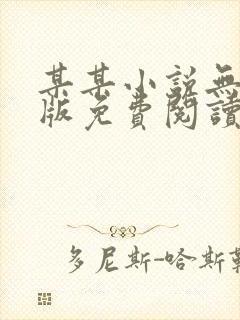 某某小説無
版免費閱讀
多尼斯-哈斯勒